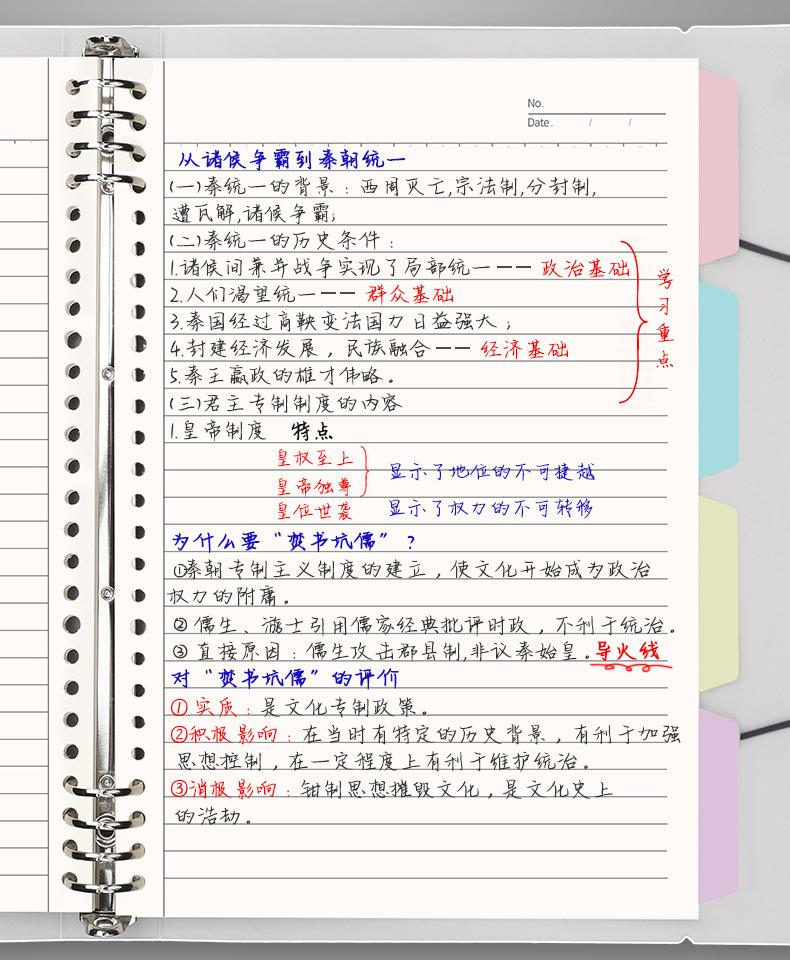 No.
Date. / /
从诸侯争霸到秦朝统一
(一)秦统一的背景：西周灭亡,宗法制,分封制,
遭瓦解,诸侯争霸;
(二)秦统一的历史条件：
1.诸侯间兼并战争实现了局部统一—— 政治基础
2.人们渴望统一—— 群众基础
3.秦国经过商鞅变法国力日益强大；
4.封建经济发展，民族融合—— 经济基础
5.秦王嬴政的雄才伟略。
学习重点
(三)君主专制制度的内容
1.皇帝制度 特点
皇权至上
皇帝独尊 显示了地位的不可捷越
皇位世袭 显示了权力的不可转移
为什么要“焚书坑儒”？
①秦朝专制主义制度的建立，使文化开始成为政治
权力的附庸。
② 儒生、游士引用儒家经典批评时政，不利于统治。
③ 直接原因：儒生攻击郡县制,非议秦始皇。导火线
对“焚书坑儒”的评价
① 实质：是文化专制政策。
②积极影响：在当时有特定的历史背景，有利于加强
思想控制，在一定程度上有利于维护统治。
③消极影响：钳制思想摧毁文化，是文化史上
的浩劫。